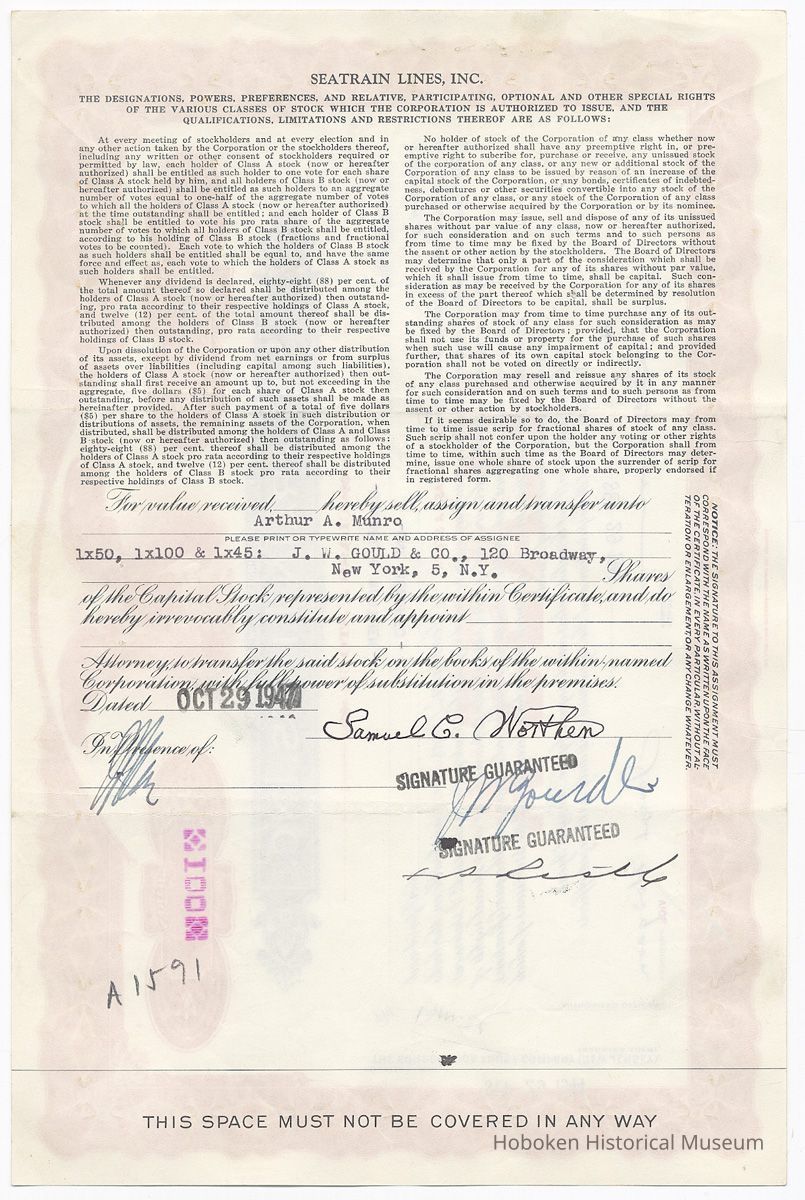 SEATRAIN LINES, INC.
THE DESIGNATIONS, POWERS, PREFERENCES, AND RELATIVE, PARTICIPATING, OPTIONAL AND OTHER SPECIAL RIGHTS
OF THE VARIOUS CLASSES OF STOCK WHICH THE CORPORATION IS AUTHORIZED TO ISSUE, AND THE
QUALIFICATIONS, LIMITATIONS AND RESTRICTIONS THEREOF ARE AS FOLLOWS:
At every meeting of stockholders and at every election and in
any other action taken by the Corporation or the stockholders thereof,
including any written or other consent of stockholders required or
permitted by law, each holder of Class A stock (now or hereafter
authorized) shall be entitled as such holder to one vote for each share
of Class A stock held by him, and all holders of Class B stock (now or
hereafter authorized) shall be entitled as such holders to an aggregate
number of votes equal to one-half of the aggregate number of votes
to which all the holders of Class A stock (now or hereafter authorized)
at the time outstanding shall be entitled; and each holder of Class B
stock shall be entitled to vote his pro rata share of the aggregate
number of votes to which all holders of Class B stock shall be entitled,
according to his holding of Class B stock (fractions and fractional
votes to be counted). Each vote to which the holders of Class B stock
as such holders shall be entitled shall be equal to, and have the same
force and effect as, each vote to which the holders of Class A stock as
such holders shall be entitled.
Whenever any dividend is declared, eighty-eight (88) per cent. of
the total amount thereof so declared shall be distributed among the
holders of Class A stock (now or hereafter authorized) then outstand-
ing, pro rata according to their respective holdings of Class A stock,
and twelve (12) per cent. of the total amount thereof shall be dis-
tributed among the holders of Class B stock (now or hereafter
authorized) then outstanding, pro rata according to their respective
holdings of Class B stock.
Upon dissolution of the Corporation or upon any other distribution
of its assets, except by dividend from net earnings or from surplus
of assets over liabilities (including capital among such liabilities),
the holders of Class A stock (now or hereafter authorized) then out-
standing shall first receive an amount up to, but not exceeding in the
aggregate, five dollars ($5) for each share of Class A stock then
outstanding, before any distribution of such assets shall be made as
hereinafter provided. After such payment of a total of five dollars
($5) per share to the holders of Class A stock in such distribution or
distributions of assets, the remaining assets of the Corporation, when
distributed, shall be distributed among the holders of Class A and Class
B stock (now or hereafter authorized) then outstanding as follows:
eighty-eight (88) per cent. thereof shall be distributed among the
holders of Class A stock pro rata according to their respective holdings
of Class A stock, and twelve (12) per cent. thereof shall be distributed
among the holders of Class B stock pro rata according to their
respective holdings of Class B stock.
No holder of stock of the Corporation of any class whether now
or hereafter authorized shall have any preemptive right in, or pre-
emptive right to subcribe for, purchase or receive, any unissued stock
of the corporation of any class, or any new or additional stock of the
Corporation of any class to be issued by reason of an increase of the
capital stock of the Corporation, or any bonds, certificates of indebted-
ness, debentures or other securities convertible into any stock of the
Corporation of any class, or any stock of the Corporation of any class
purchased or otherwise acquired by the Corporation or by its nominee.
The Corporation may issue, sell and dispose of any of its unissued
shares without par value of any class, now or hereafter authorized,
for such consideration and on such terms and to such persons as
from time to time may be fixed by the Board of Directors without
the assent or other action by the stockholders. The Board of Directors
may determine that only a part of the consideration which shall be
received by the Corporation for any of its shares without par value,
which it shall issue from time to time, shall be capital. Such con-
sideration as may be received by the Corporation for any of its shares
in excess of the part thereof which shall be determined by resolution
of the Board of Directors to be capital, shall be surplus.
The Corporation may from time to time purchase any of its out-
standing shares of stock of any class for such consideration as may
be fixed by the Board of Directors; provided, that the Corporation
shall not use its funds or property for the purchase of such shares
when such use will cause any impairment of capital; and provided
further, that shares of its own capital stock belonging to the Cor-
poration shall not be voted on directly or indirectly.
The Corporation may resell and reissue any shares of its stock
of any class purchased and otherwise acquired by it in any manner
for such consideration and on such terms and to such persons as from
time to time may be fixed by the Board of Directors without the
assent or other action by stockholders.
If it seems desirable so to do, the Board of Directors may from
time to time issue scrip for fractional shares of stock of any class.
Such scrip shall not confer upon the holder any voting or other rights
of a stockholder of the Corporation, but the Corporation shall from
time to time, within such time as the Board of Directors may deter-
mine, issue one whole share of stock upon the surrender of scrip for
fractional shares aggregating one whole share, properly endorsed if
in registered form.
For value received, hereby sell, assign and transfer unto
Arthur A. Munro
PLEASE PRINT OR TYPEWRITE NAME AND ADDRESS OF ASSIGNEE
1x50, 1x100 & 1x45: J. W. GOULD & CO., 120 Broadway,
New York, 5, N.Y. Shares
of the Capital Stock represented by the within Certificate, and do
hereby irrevocably constitute and appoint
Attorney, to transfer the said stock on the books of the within named
Corporation, with full power of substitution in the premises.
Dated OCT 29 1947
Samuel C. Worthen
In Presence of:
SIGNATURE GUARANTEED
SIGNATURE GUARANTEED
NOTICE: THE SIGNATURE TO THIS ASSIGNMENT MUST
CORRESPOND WITH THE NAME AS WRITTEN UPON THE FACE
OF THE CERTIFICATE, IN EVERY PARTICULAR, WITHOUT AL-
TERATION OR ENLARGEMENT, OR ANY CHANGE WHATEVER.
A 1591
THIS SPACE MUST NOT BE COVERED IN ANY WAY
Hoboken Historical Museum